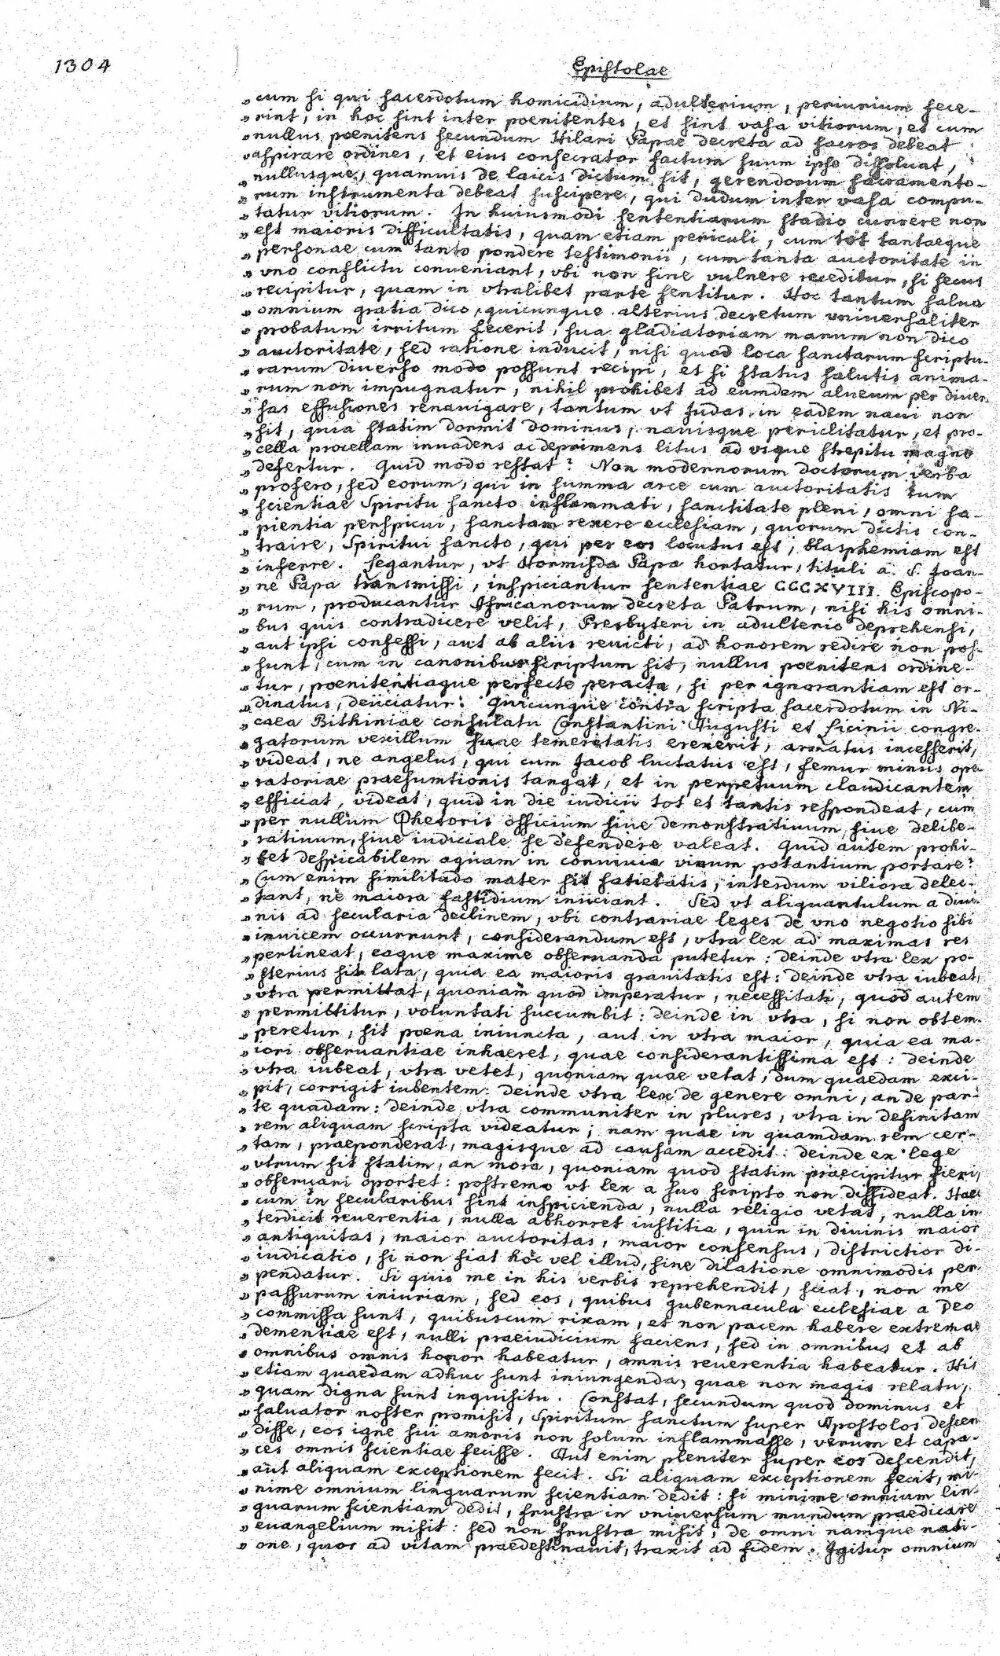 1304
Epistolae
„ cum si qui sacerdotum homicidium, adulterium, periurium fece-
„ rint, in hoc sint inter poenitentes, et sint vasa vitiorum, et cum
„ nullus poenitens secundum Hilari Papae decreta ad sacros debeat
„ aspirare ordines, et eius consecrator factum suum ipse dissoluat,
„ nullusque, quamuis de laicis dictum sit, gerendorum sacramento-
„ rum instrumenta debeat suscipere, qui dudum inter vasa compu-
„ tatur vitiorum. In huiusmodi sententiarum stadio currere non
„ est maioris difficultatis, quam etiam periculi, cum tot tantaeque
„ personae cum tanto pondere testimonii, cum tanta auctoritate in
„ vno conflictu conueniant, vbi non sine vulnere receditur, si secus
„ recipitur, quam in vtralibet parte sentitur. Hoc tantum salua
„ omnium gratia dico, quicunque alterius decretum vniuersaliter
„ probatum irritum fecerit, sua gladiatoriam manum non dico
„ auctoritate, sed ratione inducit, nisi quod loca sanctarum scriptu-
„ rarum diuerso modo possunt recipi, et si status salutis anima-
„ rum non impugnatur, nihil prohibet ad eumdem alueum per diuer-
„ sas effusiones renauigare, tantum vt Iudas in eadem naui non
„ sit, quia statim dormit dominus, nauisque periclitatur, et pro-
„ cella procellam inuadens ac deprimens litus ad vsque strepitu magno
„ defertur. Quid modo restat? Non modernorum doctorum verba
„ profero, sed eorum, qui in summa arce cum auctoritatis tum
„ scientiae Spiritu sancto inflammati, sanctitate pleni, omni sa-
„ pientia perspicui, sanctam rexere ecclesiam, quorum dictis con-
„ traire, Spiritui sancto, qui per eos locutus est, blasphemiam est
„ inferre. Legantur, vt Hormisda Papa hortatur, tituli a S. Ioan-
„ ne Papa transmissi, inspiciantur sententiae CCCXVIII. Episcopo-
„ rum, producantur Africanorum decreta Patrum, nisi his omni-
„ bus quis contradicere velit, Presbyteri in adulterio deprehensi,
„ aut ipsi confessi, aut ab aliis reuicti, ad honorem redire non pos-
„ sunt, cum in canonibus scriptum sit, nullus poenitens ordine-
„ tur, poenitentiaque perfecte peracta, si per ignorantiam est or-
„ dinatus, deiiciatur. Quicunque contra scripta sacerdotum in Ni-
„ caea Bithiniae consulatu Constantini Augusti et Licinii congre-
„ gatorum vexillum suae temeritatis erexerit, armatus incesserit,
„ videat, ne angelus, qui cum Jacob luctatus est, femur minus ope-
„ ratoriae praesumtionis tangat, et in perpetuum claudicantem
„ efficiat, videat, quid in die iudicii tot et tantis respondeat, cum
„ per nullum Rhetoris officium siue demonstratiuum, siue delibe-
„ ratiuum, siue iudiciale se defendere valeat. Quid autem prohi-
„ bet despicabilem aquam in conuiuia vinum potantium portare?
„ Cum enim similitudo mater sit satietatis, interdum viliora delec-
„ tant, ne maiora fastidium iniiciant. Sed vt aliquantulum a diui-
„ nis ad secularia declinem, vbi contrariae leges de vno negotio sibi
„ inuicem occurrunt, considerandum est, vtra lex ad maximas res
„ pertineat, eaque maxime obseruanda putetur: deinde vtra lex po-
„ sterius sit lata, quia ea maioris grauitatis est: deinde vtra iubeat,
„ vtra permittat, quoniam quod imperatur, necessitati, quod autem
„ permittitur, voluntati succumbit: deinde in vtra, si non obtem-
„ peretur, sit poena iniuncta, aut in vtra maior, quia ea ma-
„ iori obseruantiae inhaeret, quae considerantissima est: deinde
„ vtra iubeat, vtra vetet, quoniam quae vetat, dum quaedam exci-
„ pit, corrigit iubentem: deinde vtra lex de genere omni, an de par-
„ te quadam: deinde vtra communiter in plures, vtra in definitam
„ rem aliquam scripta videatur, nam quae in quamdam rem cer-
„ tam, praeponderat, magisque ad causam accedit: deinde ex lege
„ vtrum sit statim, an mora, quoniam quod statim praecipitur fieri,
„ obseruari oportet: postremo vt lex a suo scripto non dissideat. Haec
„ cum in secularibus sint inspicienda, nulla religio vetat, nulla in-
„ terdicit reuerentia, nulla abhorret iustitia, quin in diuinis maior
„ antiquitas, maior auctoritas, maior consensus, districtior di-
„ iudicatio, si non fiat hoc vel illud, sine dilatione omnimodis per-
„ pendatur. Si quis me in his verbis reprehendit, sciat, non me
„ passurum iniuriam, sed eos, quibus gubernacula ecclesiae a Deo
„ commissa sunt, quibuscum rixam, et non pacem habere extremae
„ dementiae est, nulli praeiudicium faciens, sed in omnibus et ab
„ omnibus omnis honor habeatur, omnis reuerentia habeatur. His
„ etiam quaedam adhuc sunt iniungenda, quae non magis relatu,
„ quam digna sunt inquisitu. Constat, secundum quod dominus et
„ saluator noster promisit, Spiritum sanctum super Apostolos descen-
„ disse, eos igne sui amoris non solum inflammasse, verum et capa-
„ ces omnis scientiae fecisse. Aut enim pleniter super eos descendit,
„ aut aliquam exceptionem fecit. Si aliquam exceptionem fecit, mi-
„ nime omnium linguarum scientiam dedit: si minime omnium lin-
„ guarum scientiam dedit, frustra in vniuersum mundum praedicare
„ euangelium misit: sed non frustra misit, de omni namque nati-
„ one, quos ad vitam praedestinauit, traxit ad fidem. Igitur omnium